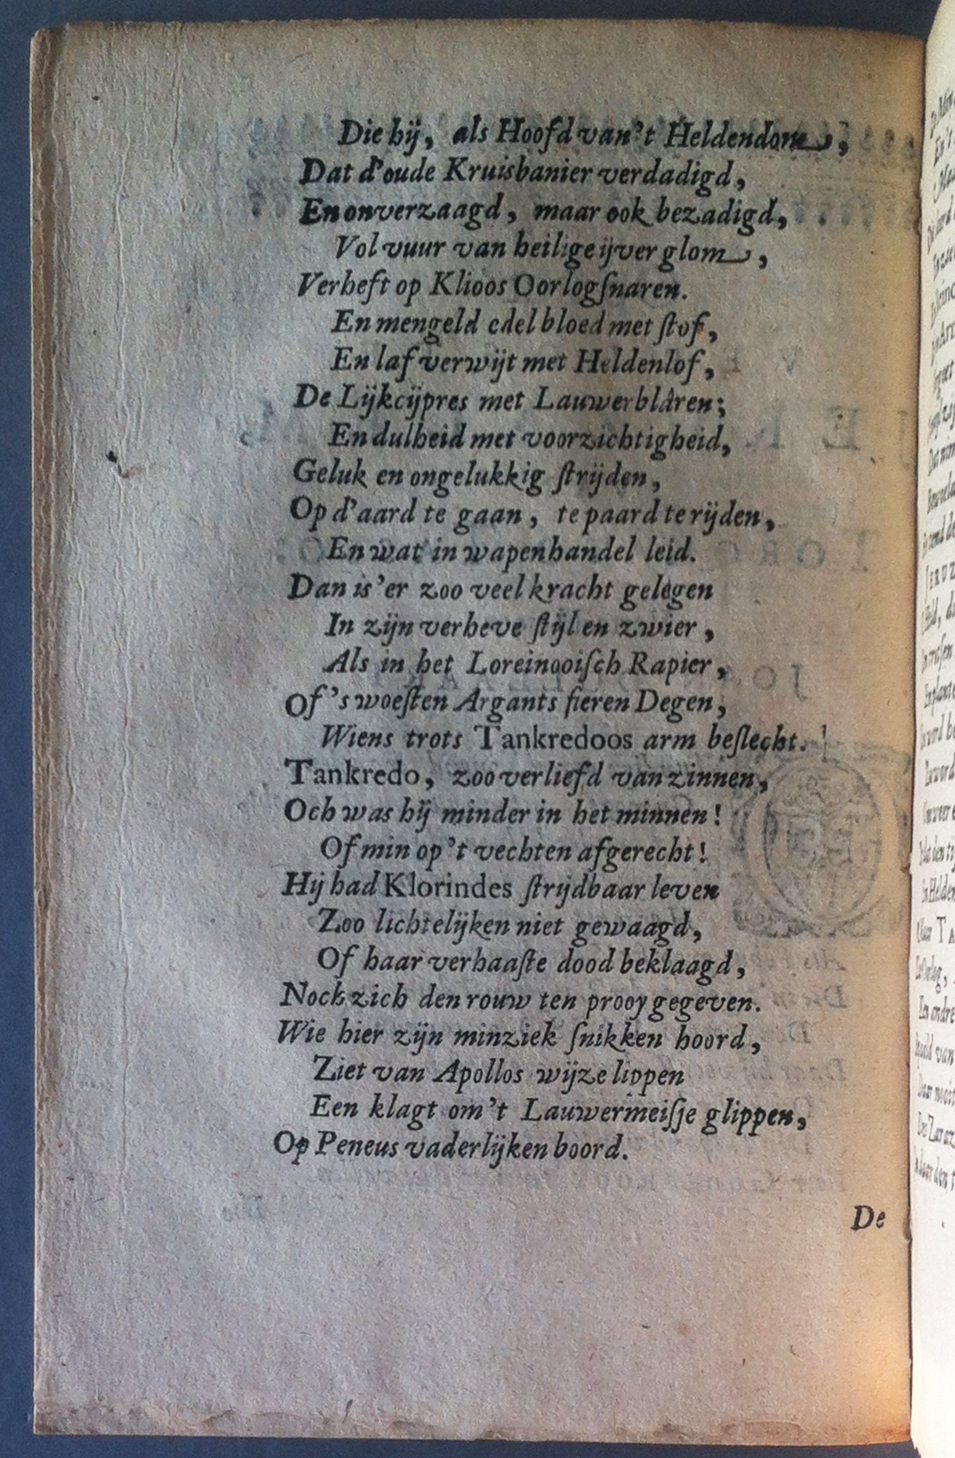 Die hij, als Hoofd van't Heldendom,
Dat d'oude Kruisbanier verdadigd,
En onverzaagd, maar ook bezadigd,
Vol vuur van heilige ijver glom,
Verheft op Klioos Oorlogſnaren.
En mengeld edel bloed met ſtof,
En laf verwijt met Heldenlof,
De Lijkcijpres met Lauwerbláren;
En dulheid met voorzichtigheid,
Geluk en ongelukkig ſtrijden,
Op d'aard te gaan, te paard te rijden,
En wat in wapenhandel leid.
Dan is'er zoo veel kracht gelegen
In zijn verheve ſtijl en zwier,
Als in het Loreinooiſch Rapier,
Of's woeſten Argants fieren Degen,
Wiens trots Tankredoos arm beſlecht.
Tankredo, zoo verliefd van zinnen,
Och was hij minder in het minnen!
Of min op't vechten afgerecht!
Hij had Klorindes ſtrijdbaar leven
Zoo lichtelijken niet gewaagd,
Of haar verhaaſte dood beklaagd,
Noch zich den rouw ten prooy gegeven.
Wie hier zijn minziek ſnikken hoord,
Ziet van Apollos wijze lippen
Een klagt om't Lauwermeisje glippen,
Op Peneus vaderlijken boord.
De